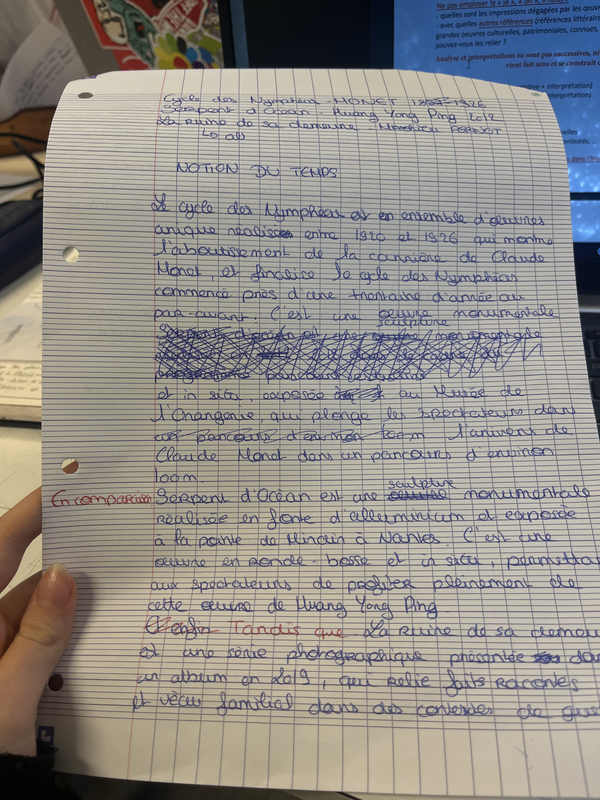 Ne pas employer le « je », « on », « nous »
- quelles sont les impressions dégagées par les œuvre
- avec quelles autres références (références littérair
grandes oeuvres culturelles, patrimoniales, connues,
pouvez-vous les relier ?
Analyse et interprétations ne sont pas successives, ni
rient fait sens et se construit
+ interprétation)
rprétation)
elles
ontestés, ...
Cycle des Nymphéas - MONET 1897-1926
Serpent d'Océan - Huang Yong Ping 2012
La Ruine de sa demeure - Mathieu PERNOT
NOTION DU TEMPS
Le cycle des Nymphéas est en ensemble d'œuvres
unique réalisées entre 1920 et 1926 qui montre
l'aboutissement de la carrière de Claude
Monet, et finalise le cycle des Nymphéas
commencé près d'une trentaine d'année au
par-avant. C'est une œuvre monumentale
sculpture
Serpent d'océan est une œuvre monumentale
et in situ, exposée au Musée de
l'Orangerie, qui plonge les spectateurs dans
un parcours d'environ 100m l'univers de
Claude Monet dans un parcours d'environ
100m.
sculpture
En comparaison Serpent d'Océan est une œuvre monumentale
réalisée en fonte d'alluminium et exposée
à la pointe de Mindin à Nantes. C'est une
œuvre en ronde-bosse et in situ, permetta
aux spectateurs de profiter pleinement de
cette œuvre de Huang Yong Ping.
enfin Tandis que La Ruine de sa demeu
est une série photographique présentée dan
un album en 2019, qui relie faits racontés
et vécu familial dans des contextes de gue